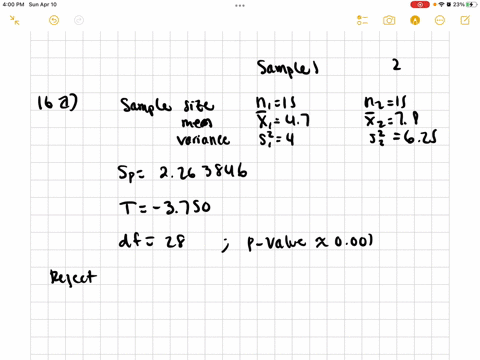 4:00 PM Sun Apr 10
23%
Sample 1 2
16 a) Sample size n₁=15 n₂=15
mean x̄₁=4.7 x̄₂=7.8
variance s₁²=4 s₂²=6.25
Sp= 2.263846
T=-3.750
df= 28 ; p-value ≈ 0.001
Reject